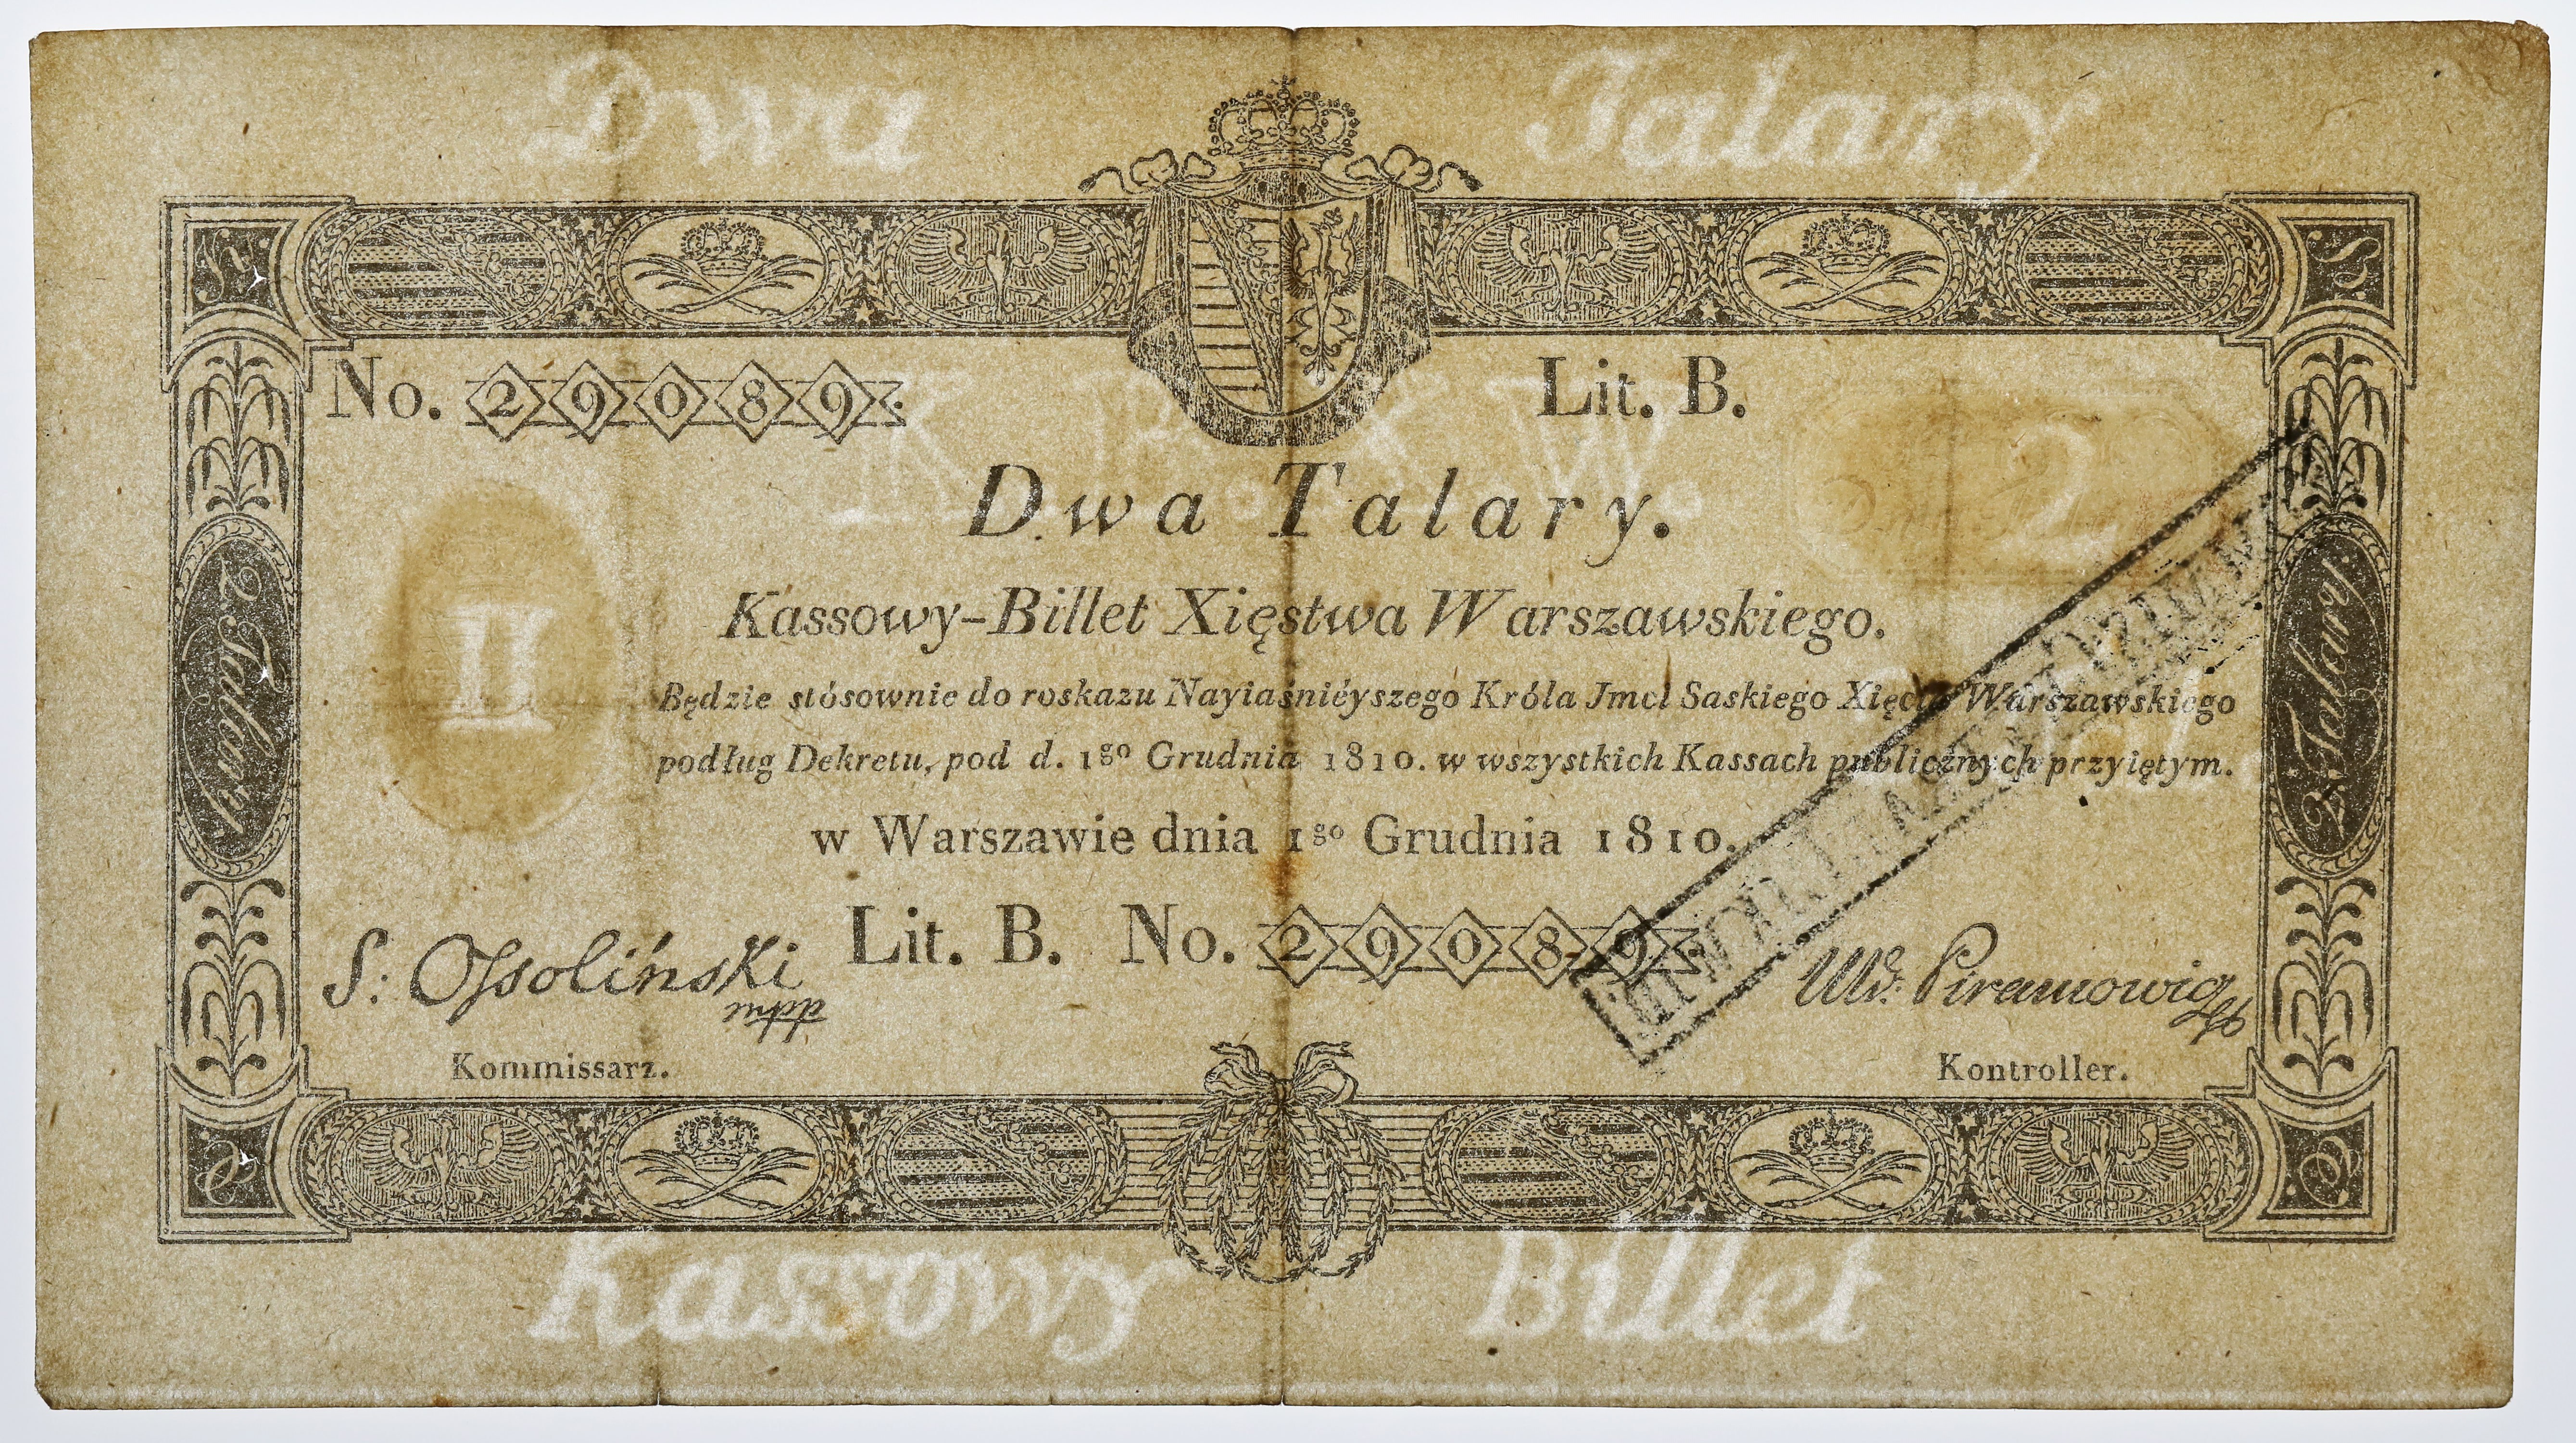 Dwa Talary
No. 29089.
Lit. B.
2
Dwa Talary.
II
Kassowy-Billet Xięstwa Warszawskiego.
2. Talary.
2. Talary.
Będzie stósownie do roskazu Nayiaśniéyszego Króla Jmci Saskiego Xięcia Warszawskiego
podług Dekretu, pod d. 1go Grudnia 1810. w wszystkich Kassach publicznych przyiętym.
w Warszawie dnia 1go Grudnia 1810.
Lit. B. No. 29089.
S: Ossoliński
Kommissarz.
Piramowicz
Kontroller.
Kassowy Billet